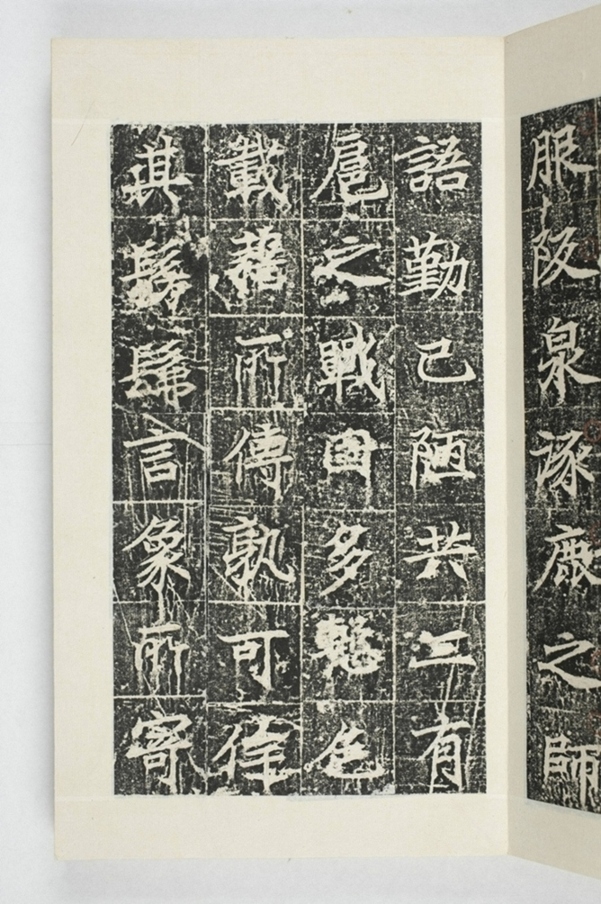 服阪泉涿鹿之師
語勤已陋共工有
扈之戰固多慙色
載藉所傳孰可侔
其髣髴言象所寄